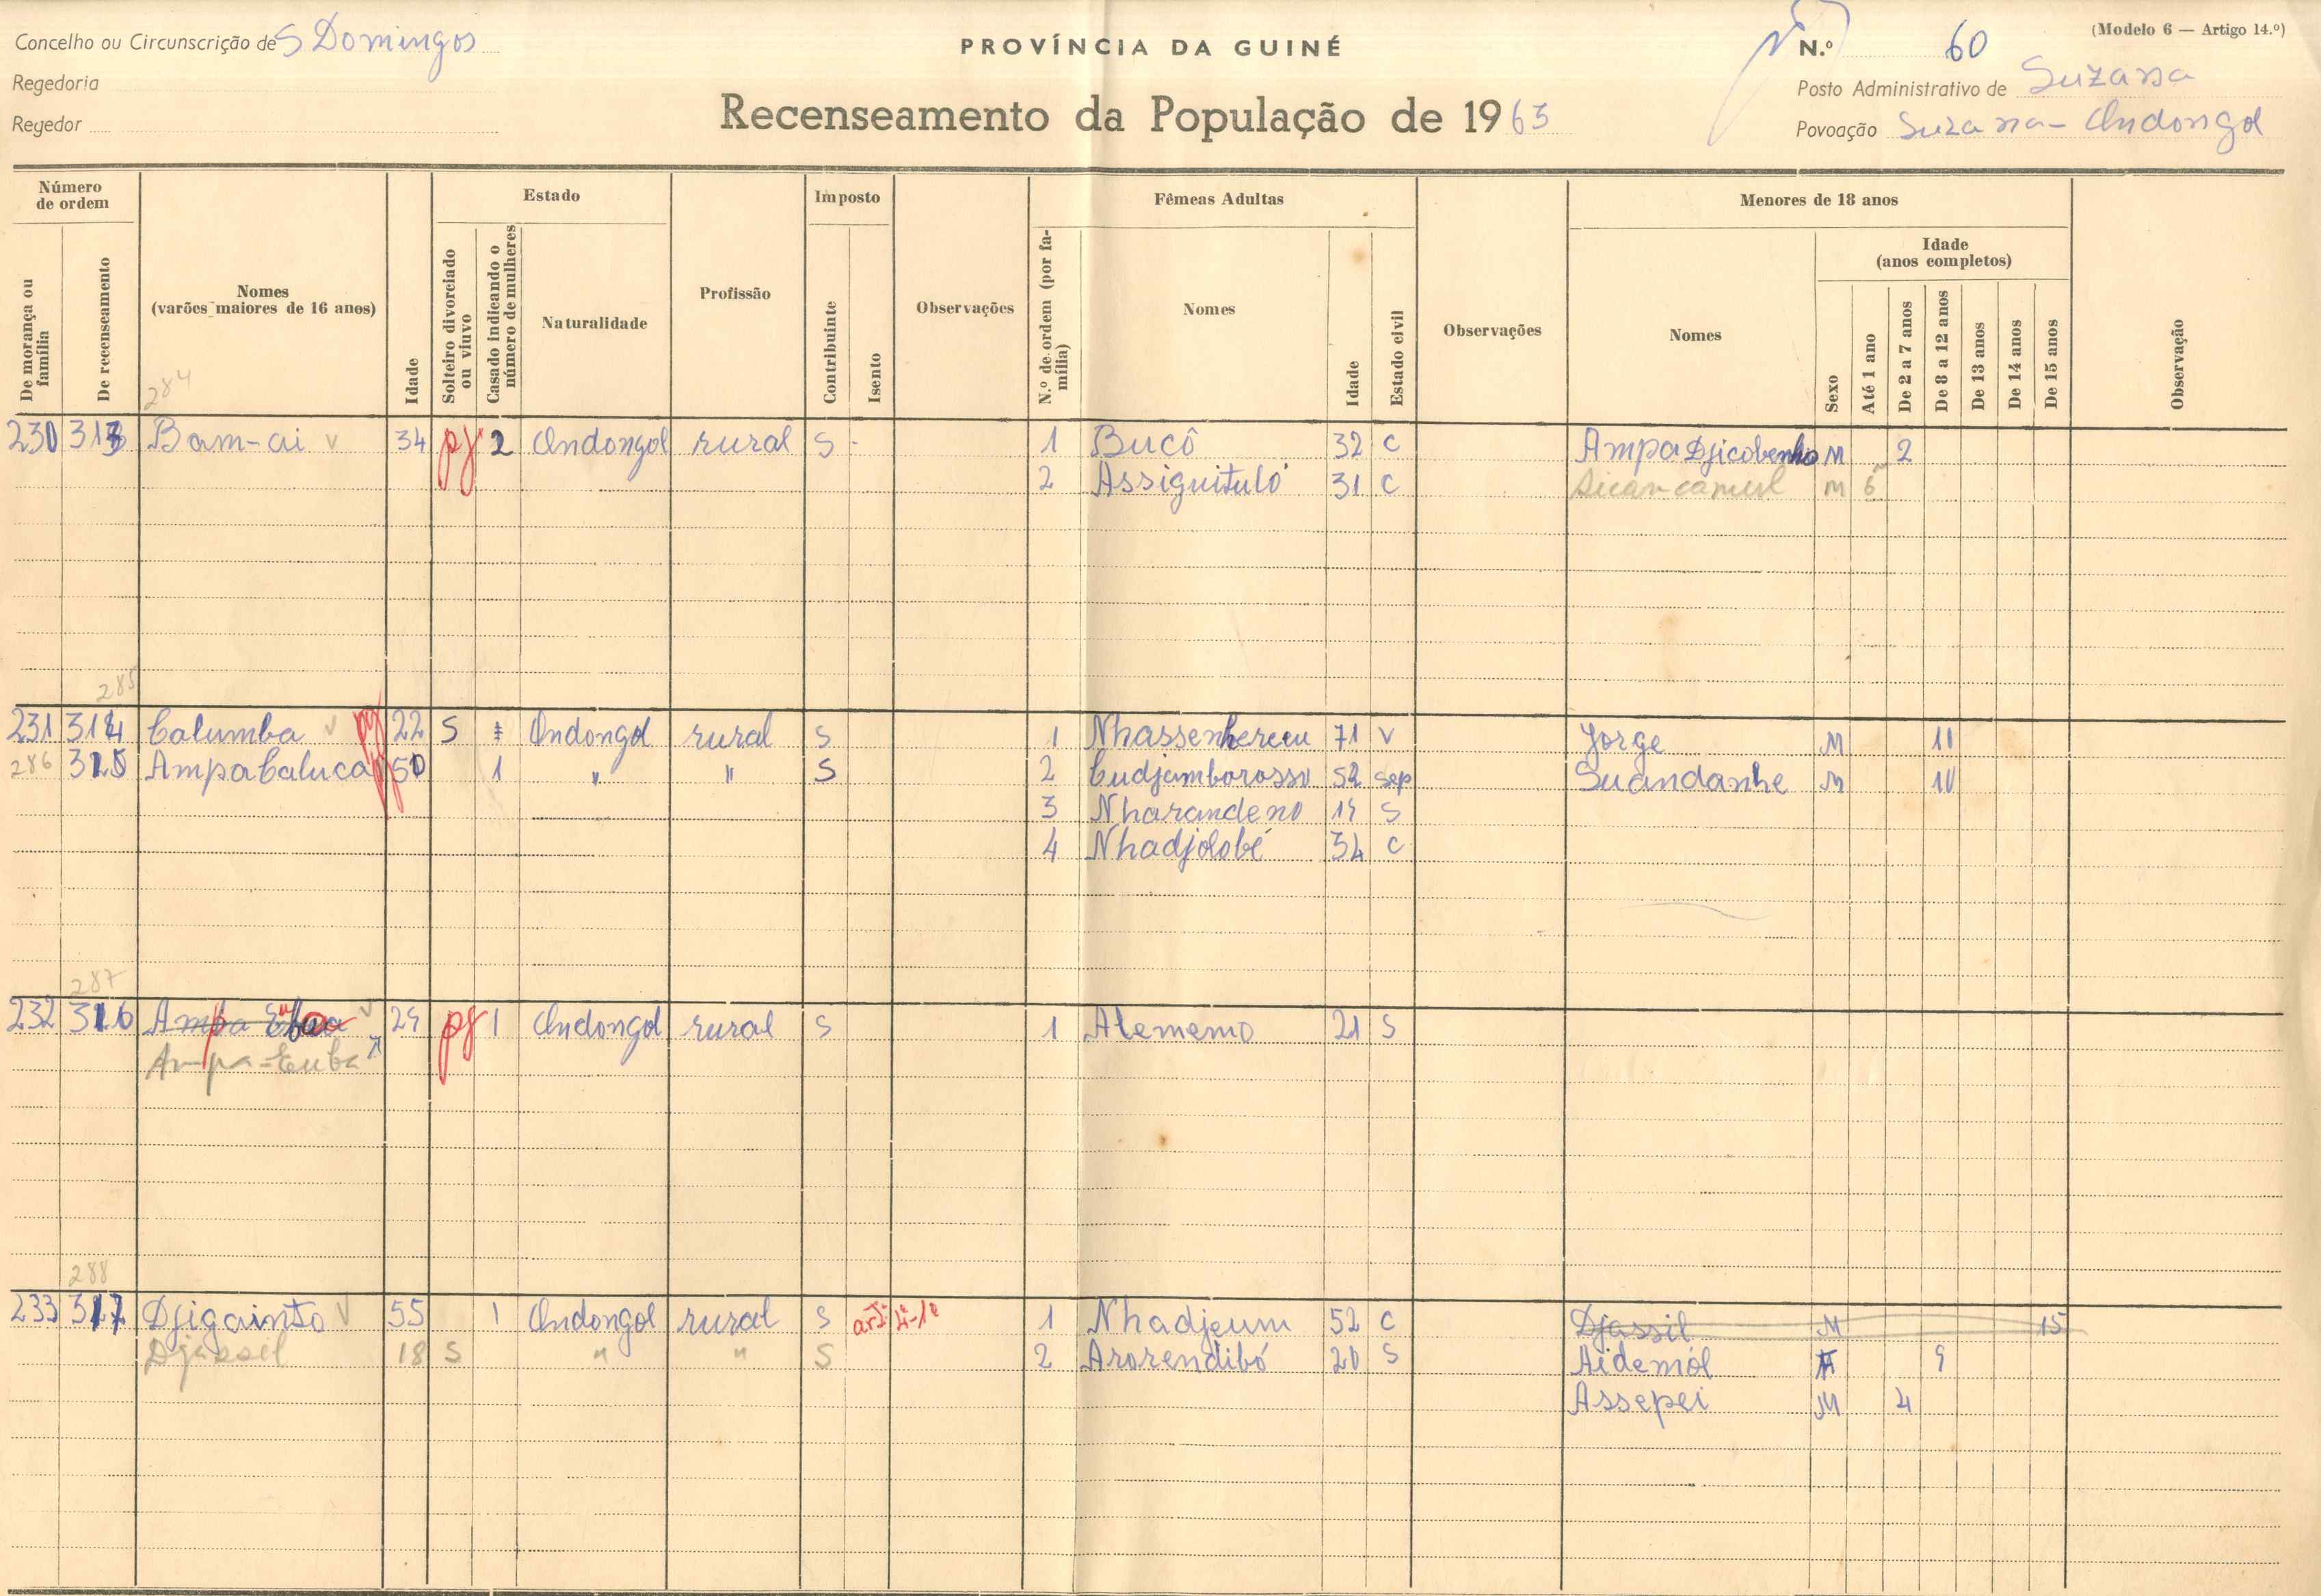 Concelho ou Circunscrição de S Domingos
PROVÍNCIA DA GUINÉ
N.º 60
(Modelo 6 — Artigo 14.º)
Regedoria
Posto Administrativo de Suzana
Regedor
Recenseamento da População de 1963
Povoação Suzana - Ondongol
Número de ordem
De morança ou família
De recenseamento
Nomes
(varões maiores de 16 anos)
Idade
Estado
Solteiro divorciado ou viuvo
Casado indicando o número de mulheres
Naturalidade
Profissão
Imposto
Contribuinte
Isento
Observações
Fêmeas Adultas
N.º de ordem (por família)
Nomes
Idade
Estado civil
Observações
Menores de 18 anos
Nomes
Sexo
Idade
(anos completos)
Até 1 ano
De 2 a 7 anos
De 8 a 12 anos
De 13 anos
De 14 anos
De 15 anos
Observação
284
230 313 Bam-ai v 34 pg 2 Ondongol rural S - 1 Bucô 32 C Ampa Djicobenho M 2
2 Assiguituló 31 C M 6
285
231 314 Calumba v pg 22 S Ondongol rural S 1 Nhassenhereu 71 V Jorge M 11
286 315 Ampa Caluca pg 50 1 " " S 2 Cudjamborosso 52 sep Suandanhe M 10
3 Nharandeno 19 S
4 Nhadjolobé 34 C
287
232 316 Ampa v 29 pg 1 Ondongol rural S 1 Alememo 21 S
Ampa-Euba x
288
233 317 Djigainto v 55 1 Ondongol rural S 1 Nhadjeum 52 C Djassil M 15
Djassil 18 S " " S 2 Arorendibó 20 S Aidemól F 9
Assepei M 4